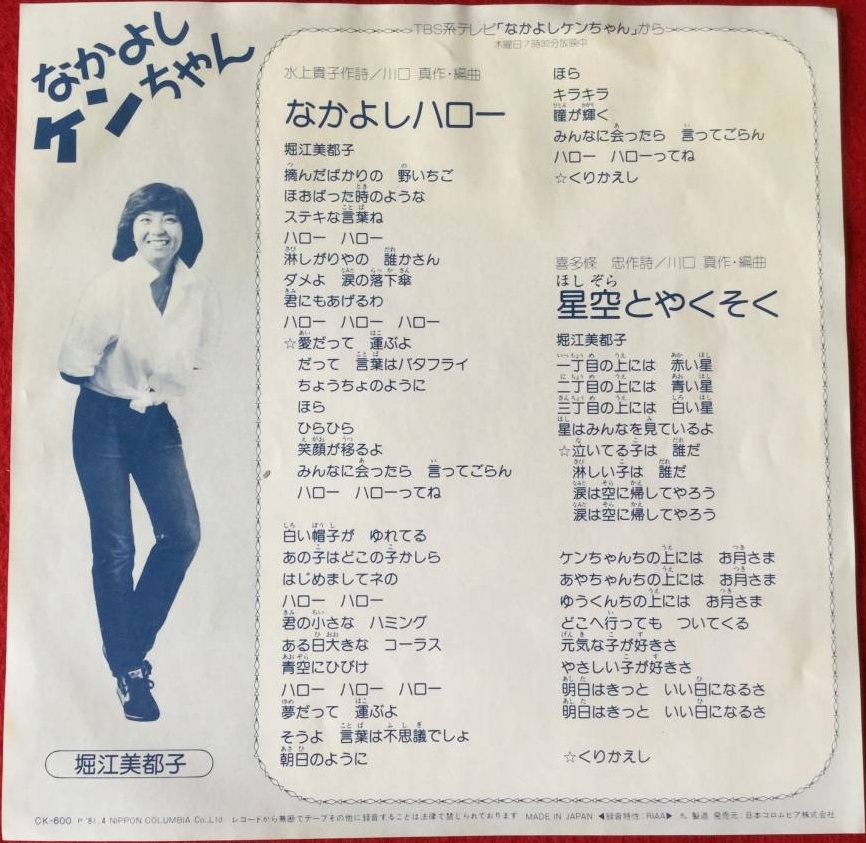 なかよし
ケンちゃん
TBS系テレビ「なかよしケンちゃん」から
木曜日7時30分放映中
水上貴子作詩／川口 真作・編曲
なかよしハロー
堀江美都子
摘んだばかりの 野いちご
ほおばった時のような
ステキな言葉ね
ハロー ハロー
淋しがりやの 誰かさん
ダメよ 涙の落下傘
君にもあげるわ
ハロー ハロー ハロー
☆愛だって 運ぶよ
だって 言葉はバタフライ
ちょうちょのように
ほら
ひらひら
笑顔が移るよ
みんなに会ったら 言ってごらん
ハロー ハローってね
白い帽子が ゆれてる
あの子はどこの子かしら
はじめましてネの
ハロー ハロー
君の小さな ハミング
ある日大きな コーラス
青空にひびけ
ハロー ハロー ハロー
夢だって 運ぶよ
そうよ 言葉は不思議でしょ
朝日のように
ほら
キラキラ
瞳が輝く
みんなに会ったら 言ってごらん
ハロー ハローってね
☆くりかえし
喜多條 忠作詩／川口 真作・編曲
ほしぞら
星空とやくそく
堀江美都子
一丁目の上には 赤い星
二丁目の上には 青い星
三丁目の上には 白い星
星はみんなを見ているよ
☆泣いてる子は 誰だ
淋しい子は 誰だ
涙は空に帰してやろう
涙は空に帰してやろう
ケンちゃんちの上には お月さま
あやちゃんちの上には お月さま
ゆうくんちの上には お月さま
どこへ行っても ついてくる
元気な子が好きさ
やさしい子が好きさ
明日はきっと いい日になるさ
明日はきっと いい日になるさ
☆くりかえし
堀江美都子
CK-600 P '81. 4 NIPPON COLUMBIA Co.,Ltd. レコードから無断でテープその他に録音することは法律で禁じられております MADE IN JAPAN ◀録音特性：RIAA▶ 製造 発売元：日本コロムビア株式会社